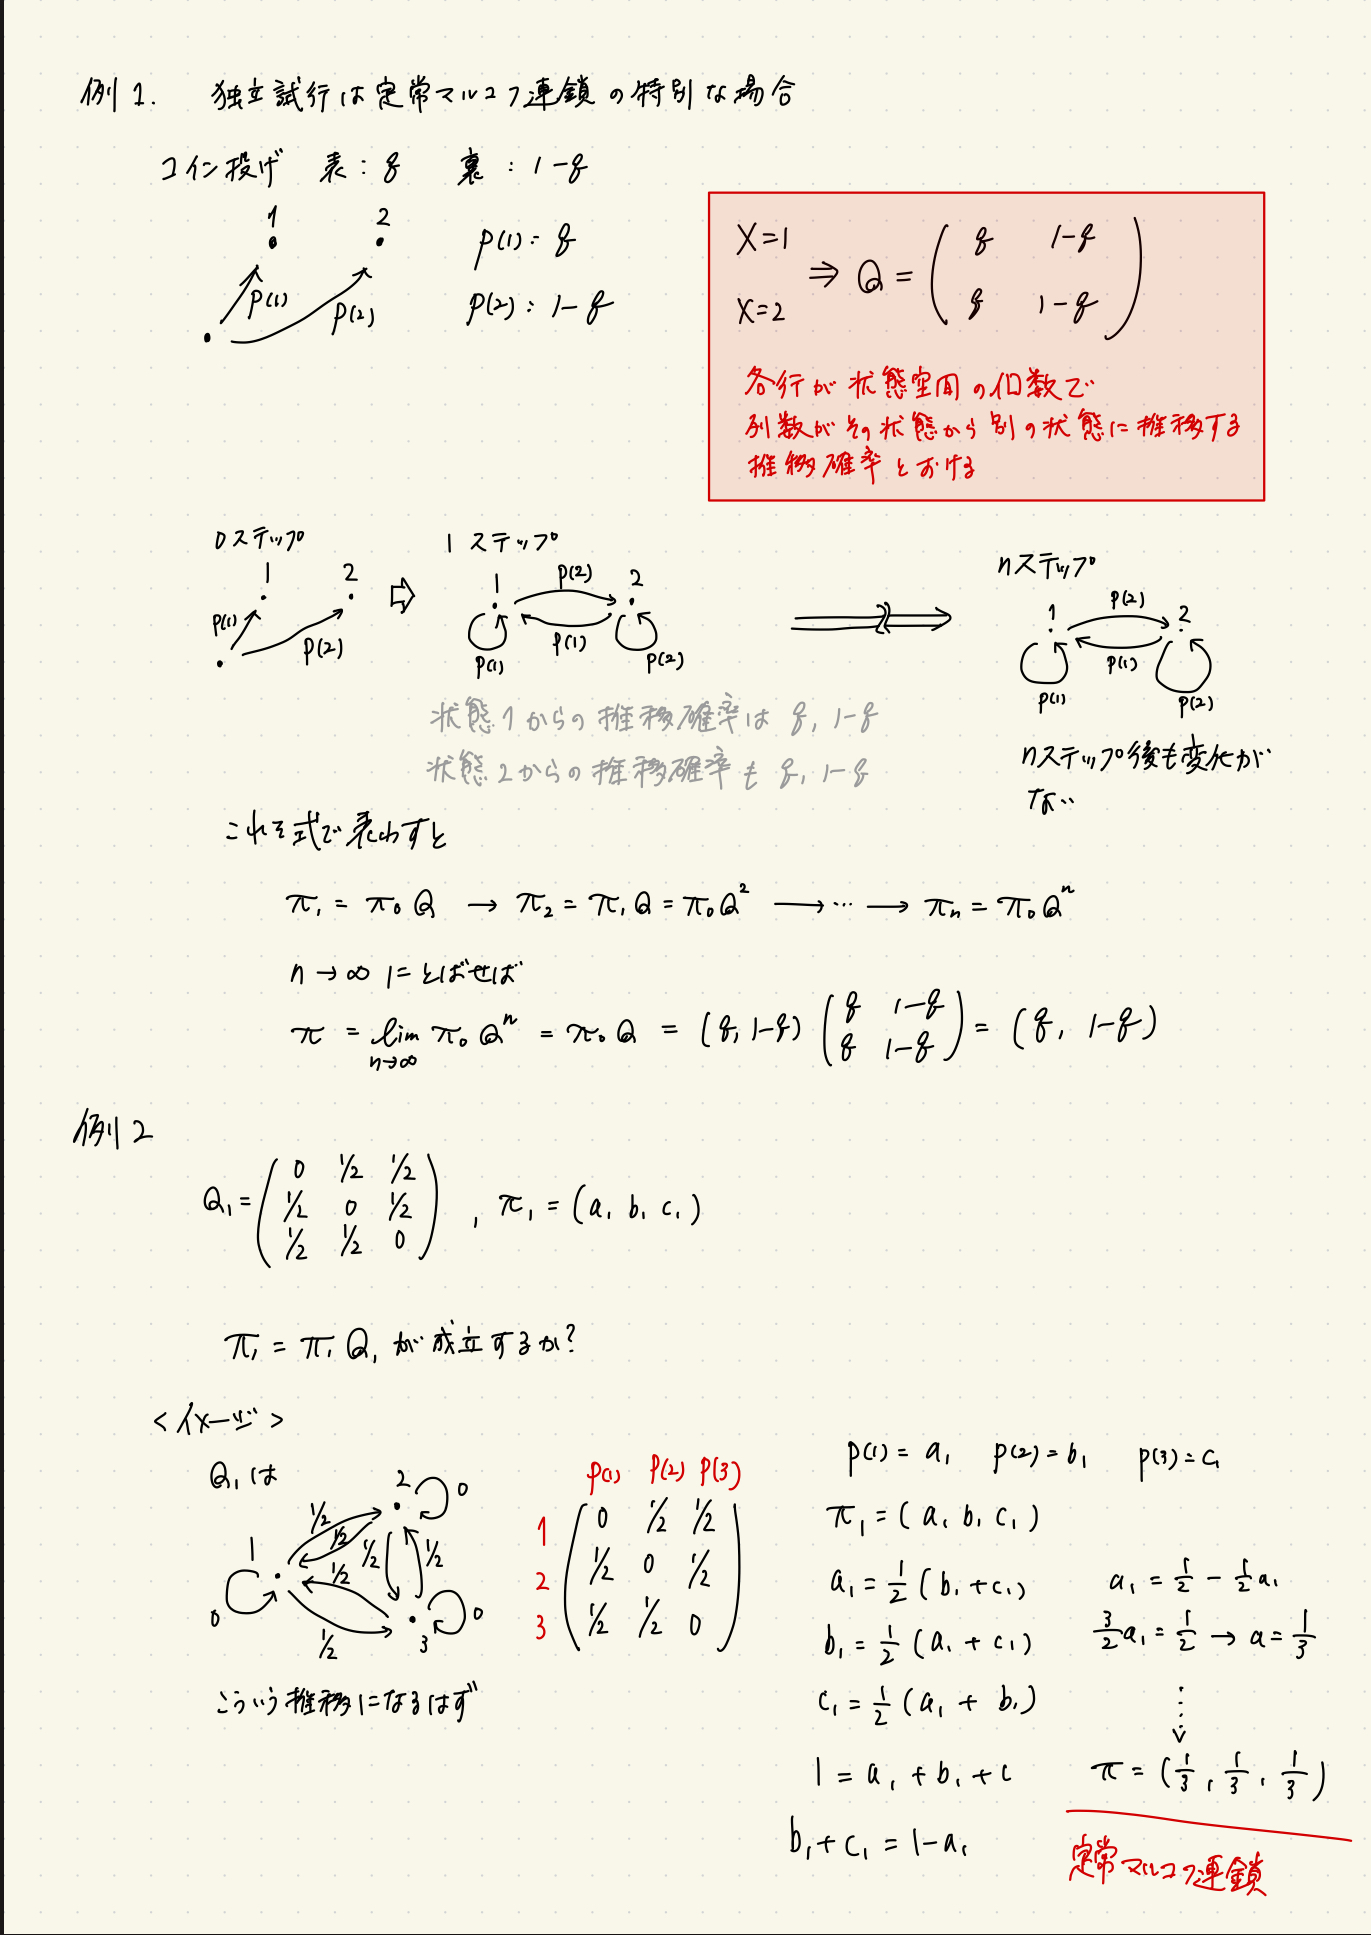 例1. 独立試行は定常マルコフ連鎖の特別な場合
コイン投げ 表：q 裏：1-q
1 2
p(1) p(2)
p(1): q
p(2): 1-q
X=1
X=2
⇒ Q = ( q 1-q
q 1-q )
各行が状態空間の個数で
列数がその状態から別の状態に推移する
推移確率とおける
0ステップ
1 2
p(1) p(2)
⇨
1ステップ
1 p(2) 2
p(1) p(1) p(2)
nステップ
1 p(2) 2
p(1) p(1) p(2)
状態1からの推移確率は q, 1-q
状態2からの推移確率も q, 1-q
nステップ後も変化が
ない
これを式で表わすと
π₁ = π₀Q → π₂ = π₁Q = π₀Q² → … → πₙ = π₀Qⁿ
n→∞ にとばせば
π = lim π₀Qⁿ = π₀Q = (q, 1-q) ( q 1-q
q 1-q ) = (q, 1-q)
n→∞
例2
Q₁ = ( 0 1/2 1/2
1/2 0 1/2
1/2 1/2 0 ) , π₁ = (a₁ b₁ c₁)
π₁ = π₁Q₁ が成立するか?
<イメージ>
Q₁は
1 2 3
0 0 0
1/2 1/2 1/2 1/2 1/2 1/2
こういう推移になるはず
p(1) p(2) p(3)
1 ( 0 1/2 1/2
2 1/2 0 1/2
3 1/2 1/2 0 )
p(1) = a₁ p(2) = b₁ p(3) = c₁
π₁ = (a₁ b₁ c₁)
a₁ = 1/2 (b₁ + c₁)
b₁ = 1/2 (a₁ + c₁)
c₁ = 1/2 (a₁ + b₁)
1 = a₁ + b₁ + c
b₁ + c₁ = 1 - a₁
a₁ = 1/2 - 1/2 a₁
3/2 a₁ = 1/2 → a = 1/3
π = (1/3, 1/3, 1/3)
定常マルコフ連鎖